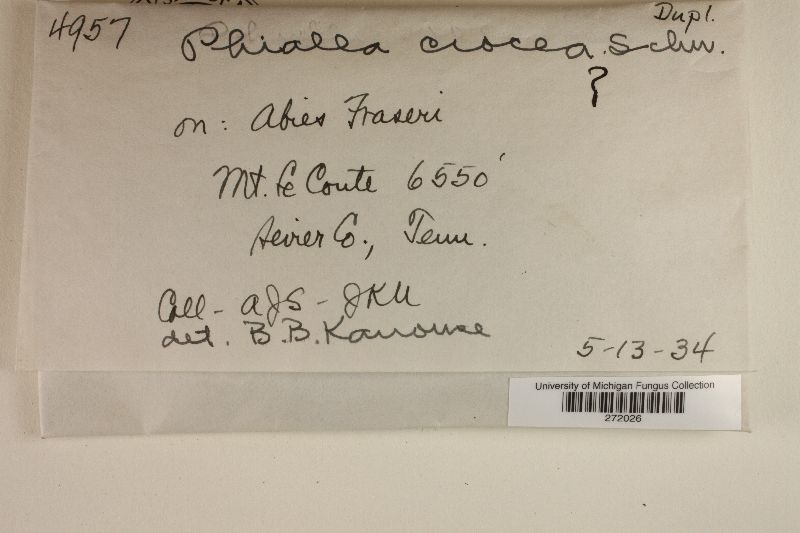 Dupl.
4957 Phialea crocea. Schw.
?
on: Abies Fraseri
Mt. Le Conte 6550'
Sevier Co., Tenn.
Coll - AJS - JKU
det. B.B. Kanouse
5-13-34
University of Michigan Fungus Collection
272026